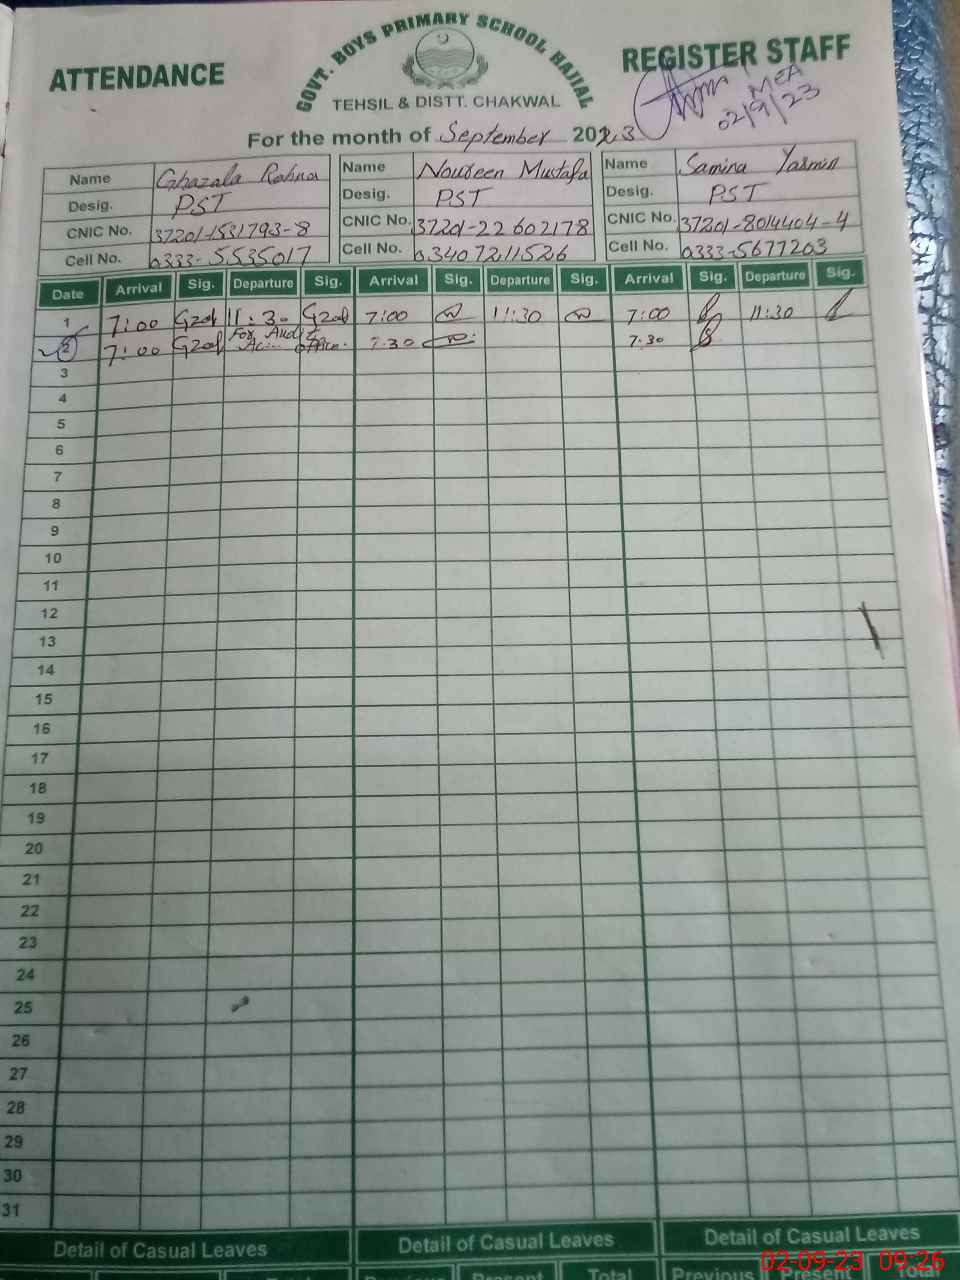 ATTENDANCE
GOVT. BOYS PRIMARY SCHOOL HAJIAL
REGISTER STAFF
TEHSIL & DISTT. CHAKWAL
MEA
02/9/23
For the month of September 2023
Name Ghazala Name Noureen Mustafa Name Samina Yasmin
Desig. PST Desig. PST Desig. PST
CNIC No. 37201-1531793-8 CNIC No. 37201-22602178 CNIC No. 37201-8014404-4
Cell No. 0333-5535017 Cell No. 03407211526 Cell No. 0333-5677203
Date Arrival Sig. Departure Sig. Arrival Sig. Departure Sig. Arrival Sig. Departure Sig.
1 7:00 11:30 7:00 11:30 7:00 11:30
2 7:00 For Audit 7.30 7.30
3
4
5
6
7
8
9
10
11
12
13
14
15
16
17
18
19
20
21
22
23
24
25
26
27
28
29
30
31
Detail of Casual Leaves Detail of Casual Leaves Detail of Casual Leaves
Present Total Previous Present Total
02-09-23 09:26